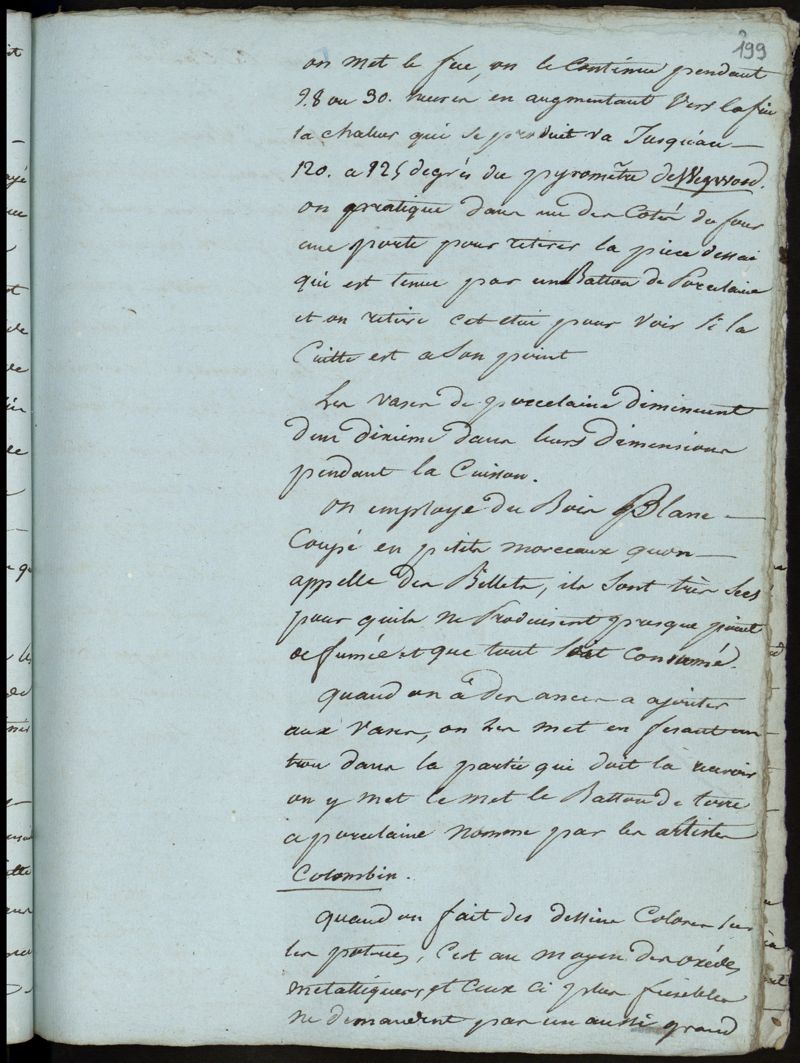 199
on met le feu, on le continue pendant
28 ou 30. heures en augmentant vers la fin
la chaleur qui se produit va Jusqu'au
120. a 125 degrés du pyromètre de Wegwood.
on pratique dans un des cotés du four
une porte pour retirer la piece dessai
qui est tenue par un Batton de Porcelaine
et on retire cet etui pour voir si la
Cuitte est a son point
Les vases de porcelaine diminuent
d'un dixieme dans leurs dimensions
pendant la Cuisson.
on employe du Bois Blanc
Coupé en petits morceaux quon
appelle des Billets, ils sont très secs
pour quils ne Produisent presque point
de fumée et que tout soit consumé.
quand on â des ances a ajouter
aux vases, on les met en fesant un
trou dans la partie qui doit la recevoir
on y met le met le Batton de terre
a porcelaine nommé par les artistes
Colombin.
quand on fait des dessins Colorés sur
les poteries, c'est au moyen des oxides
metalliques, et ceux ci plus fusibles
ne demandent pas un aussi grand